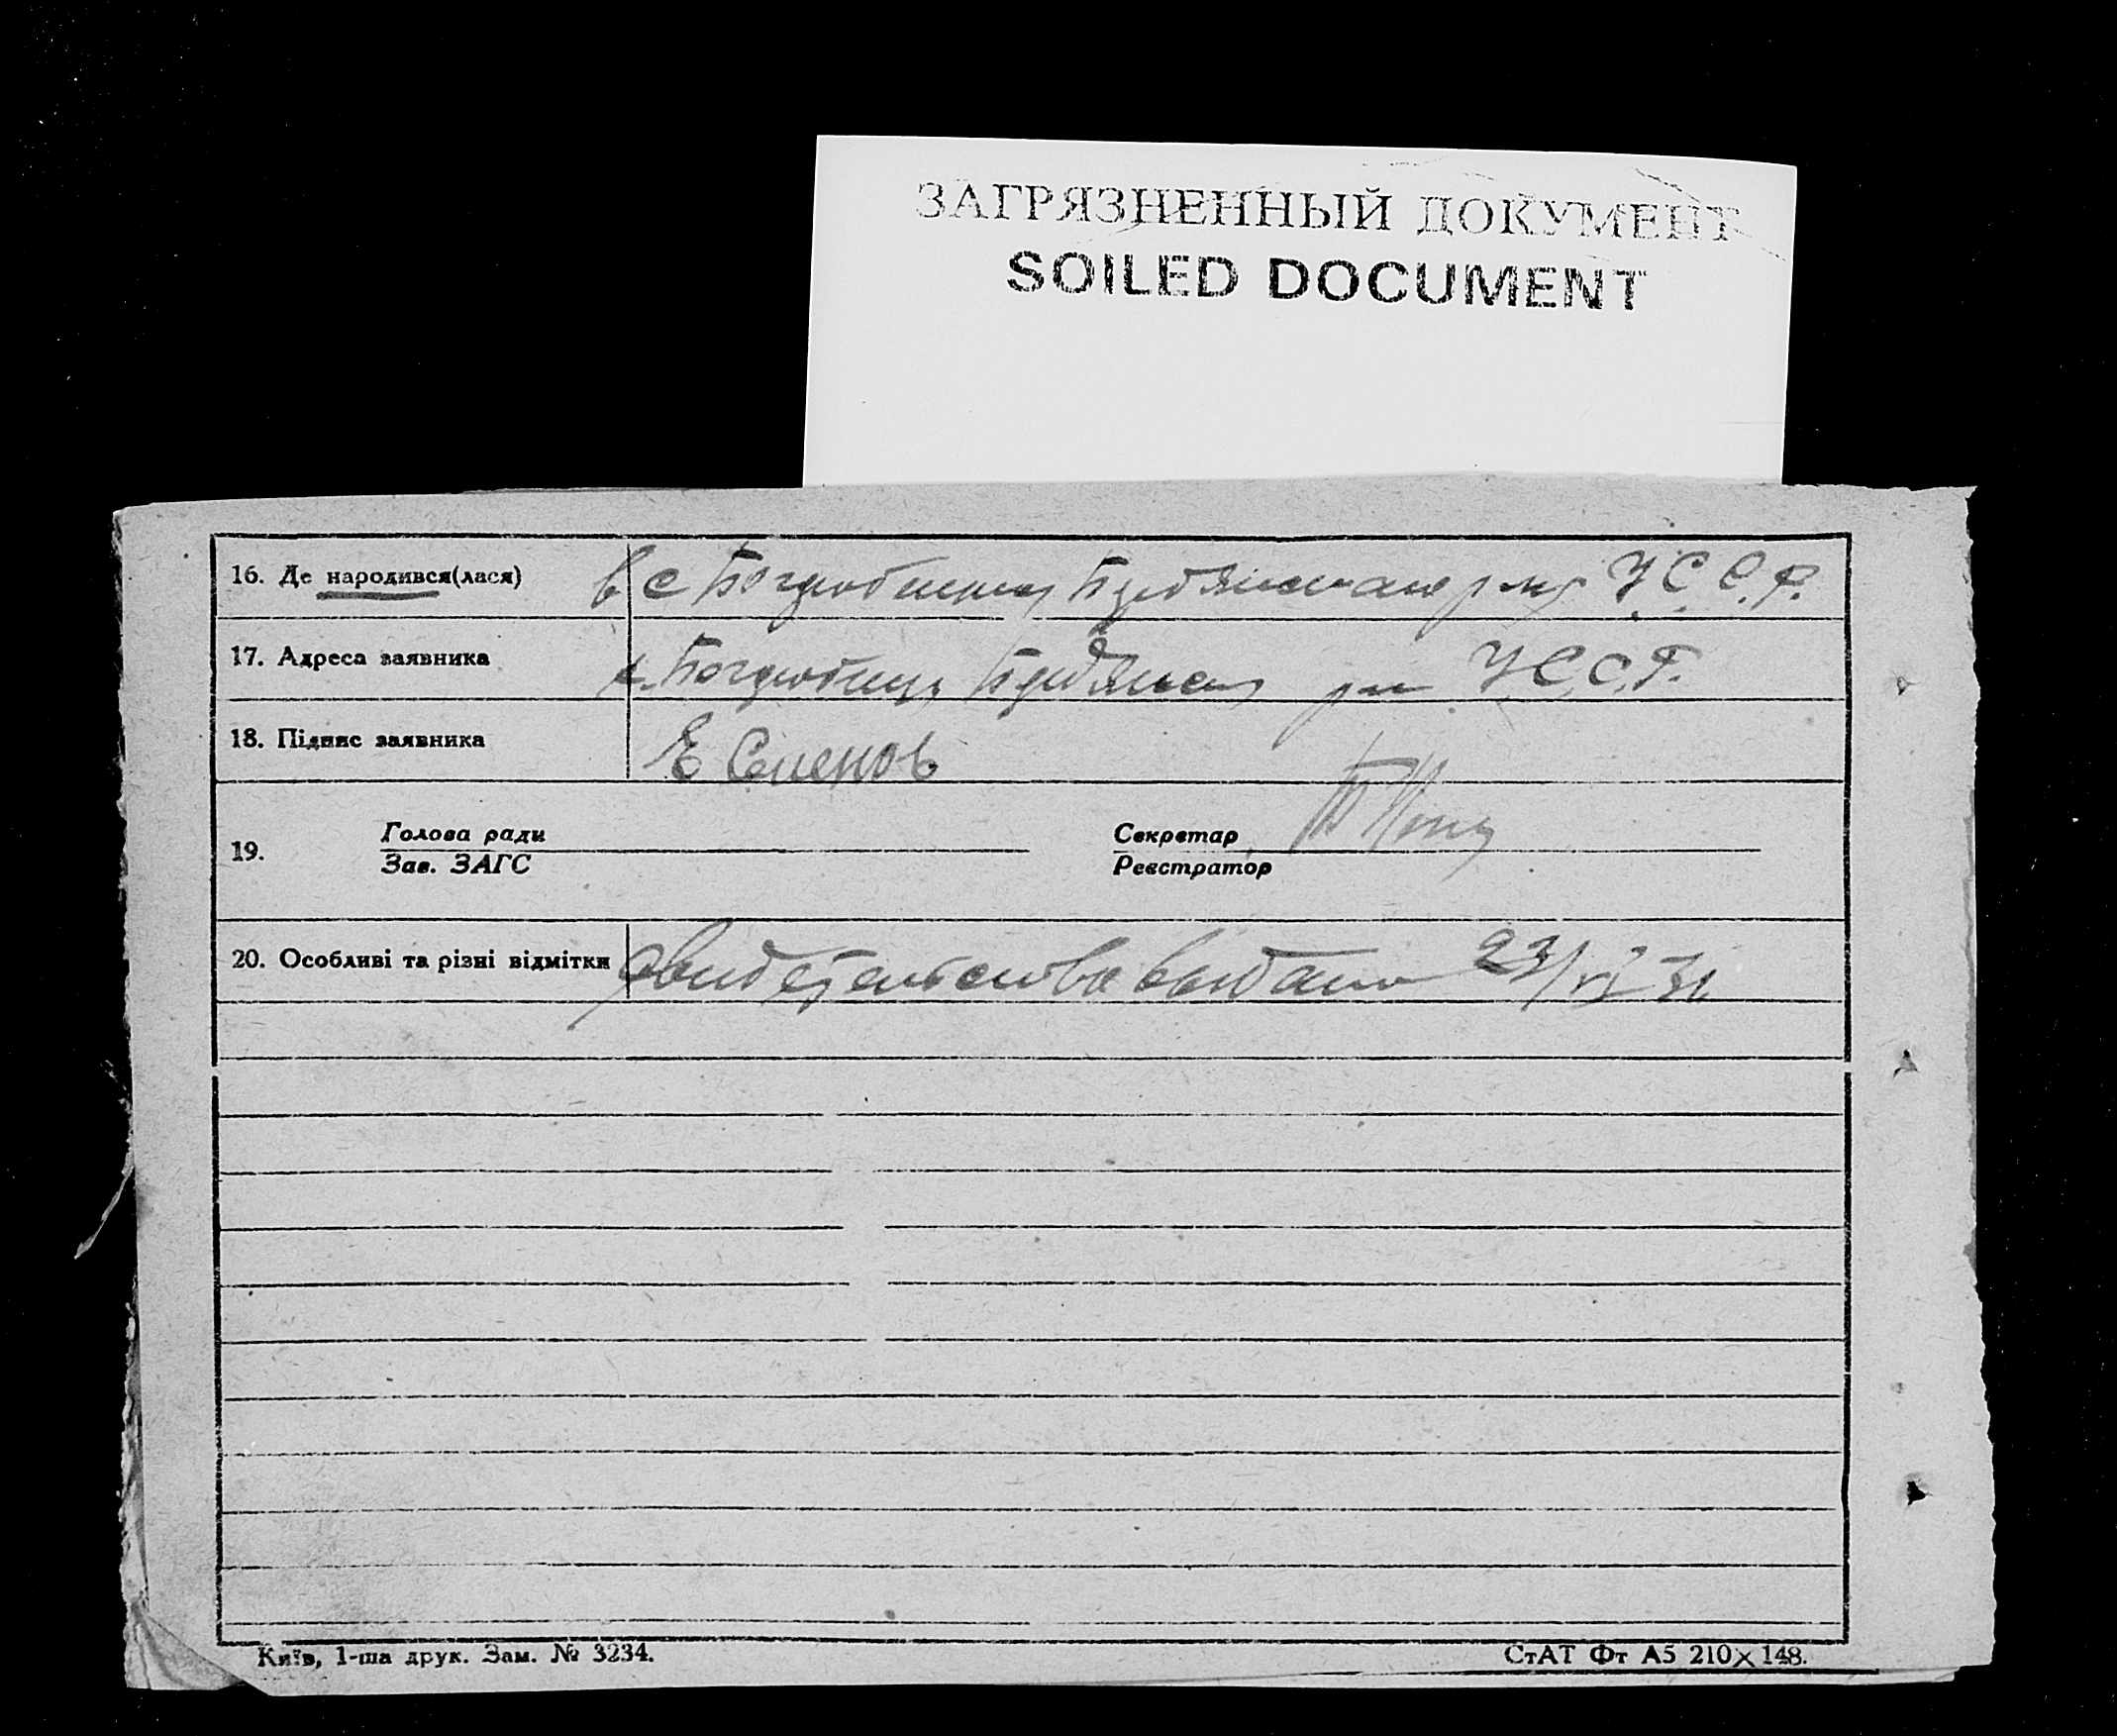 ЗАГРЯЗНЕННЫЙ ДОКУМЕНТ
SOILED DOCUMENT
16. Де народився(лася) в с У.С.С.Р.
17. Адреса заявника с. У.С.С.Р.
18. Підпис заявника Е Семенов
19. Голова ради Секретар
Зав. ЗАГС Реєстратор
20. Особливі та різні відмітки свидетельство выдано 23/VI 31
Київ, 1-ша друк. Зам. № 3234. СтАТ Фт А5 210×148.